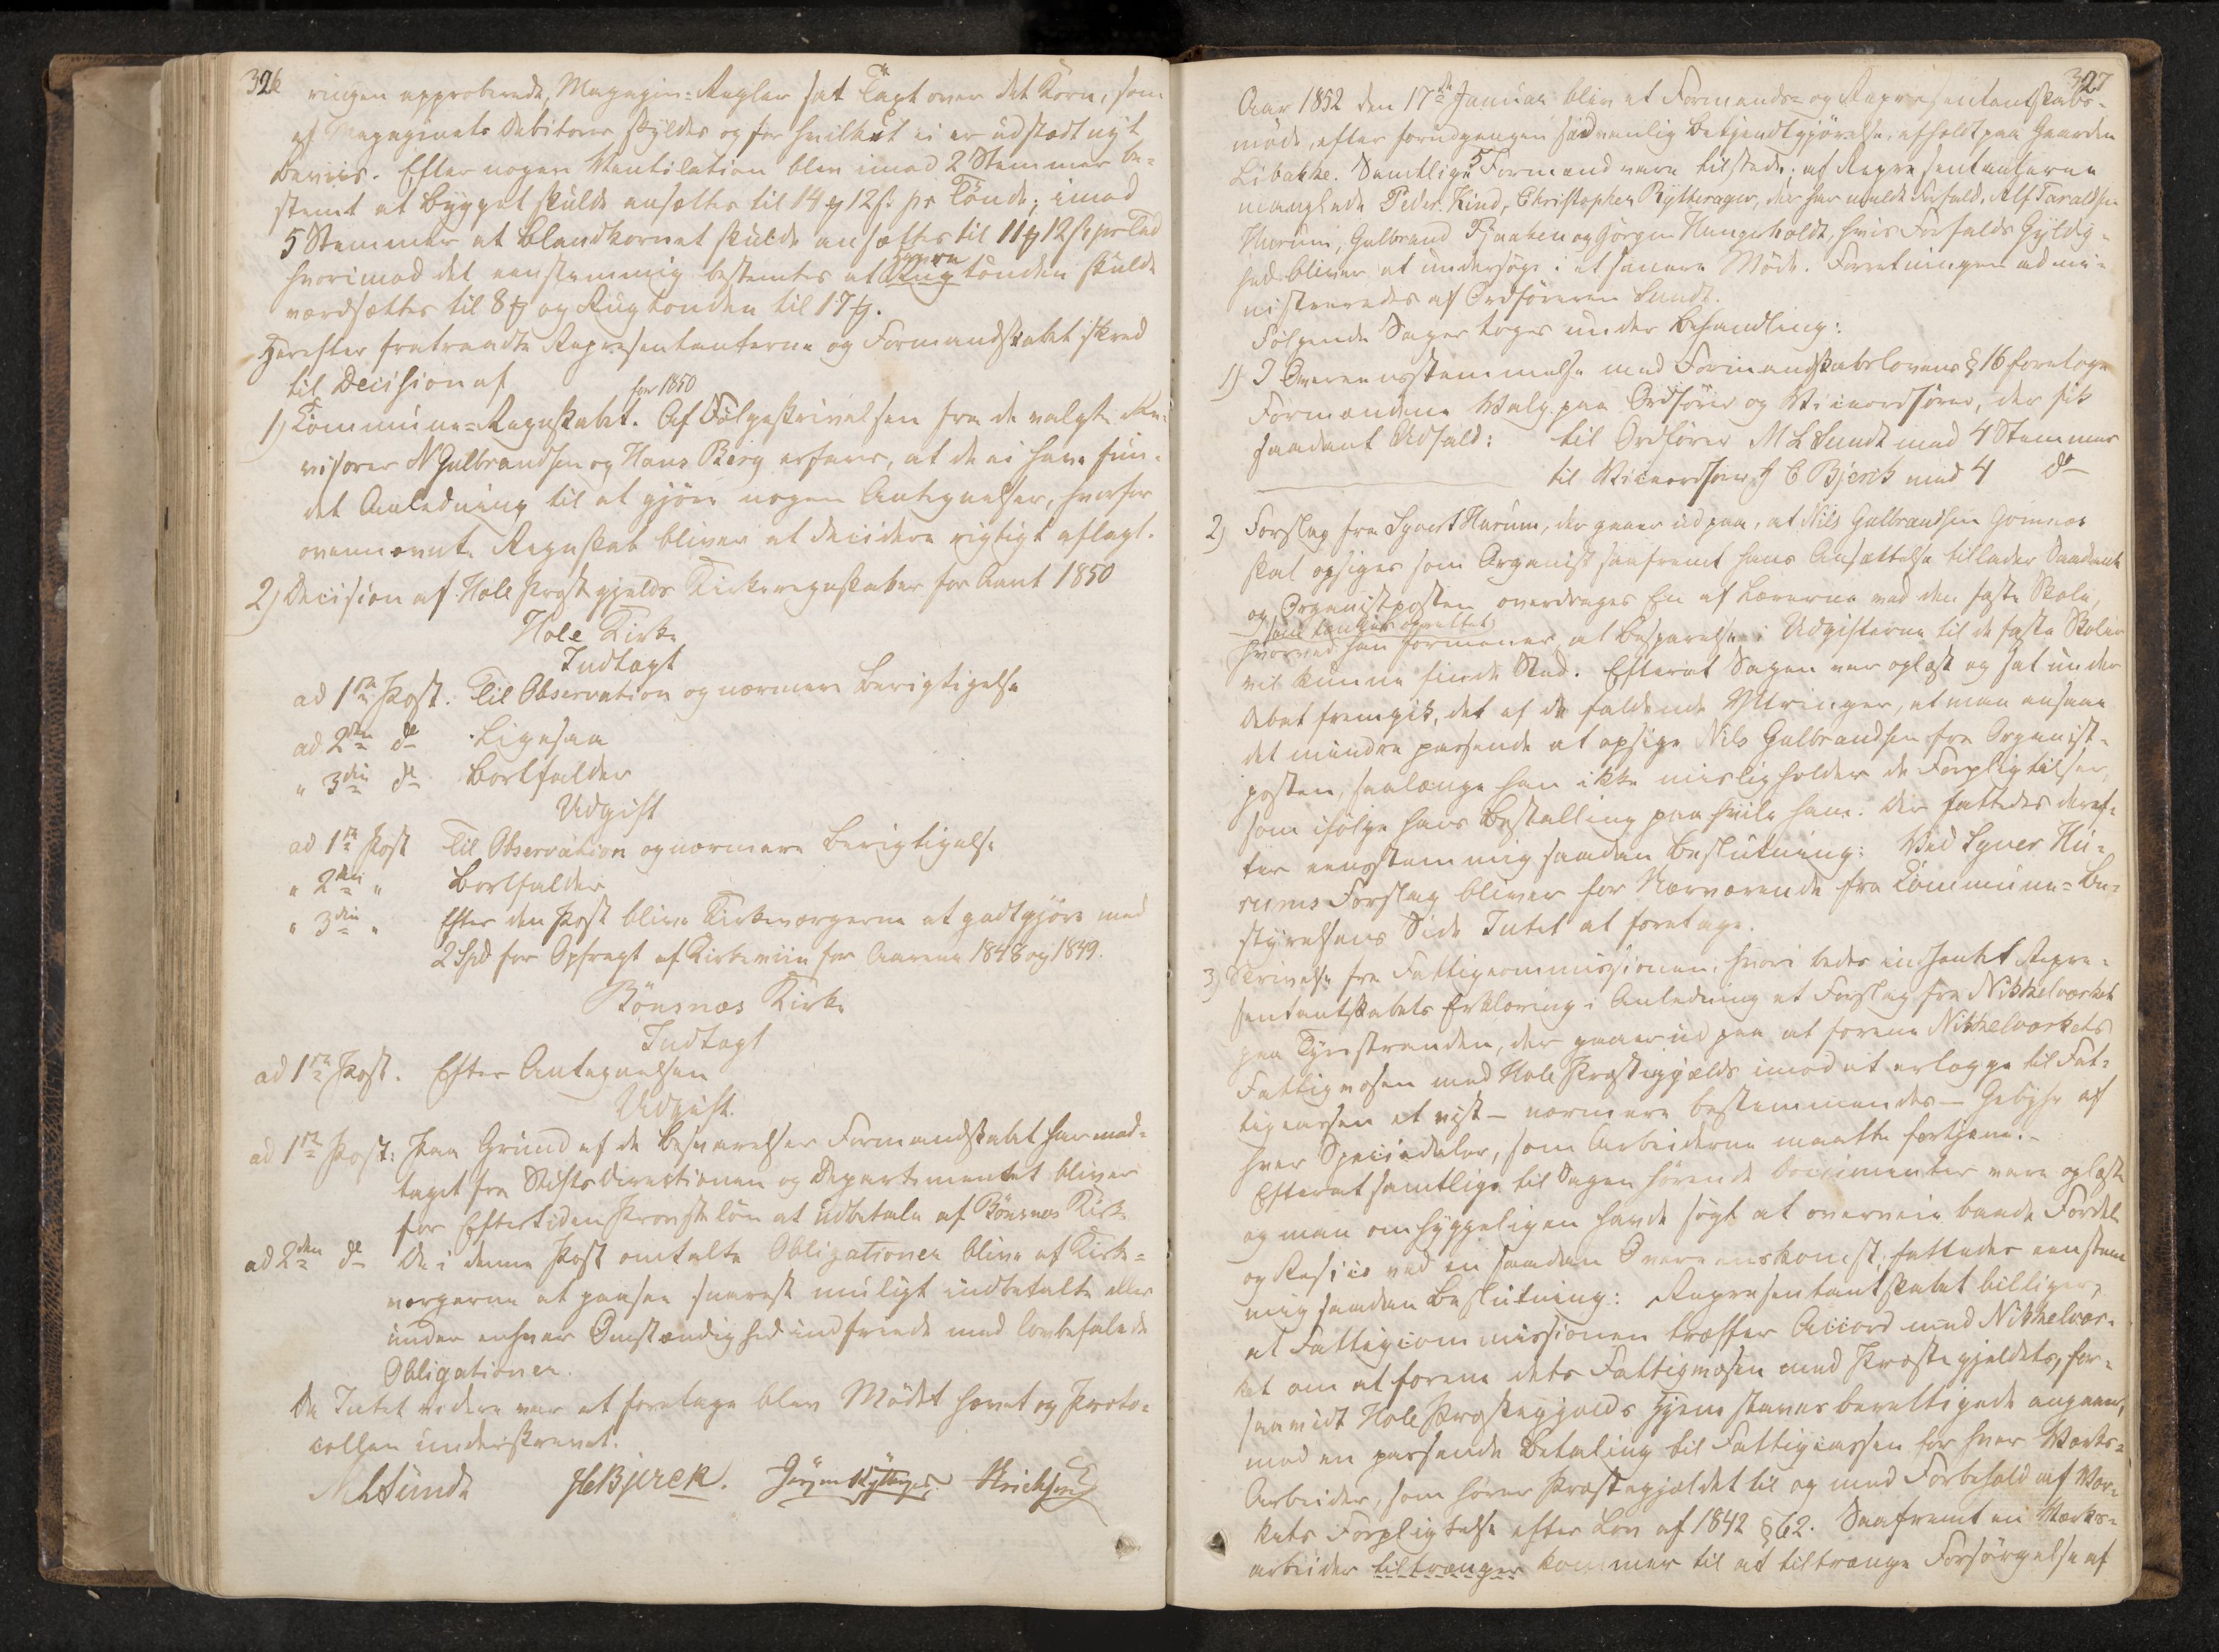 326
ringen approberede Magazin-Regler sat Taxt over det Korn, som
af Magazinets Debitorer skyldes og for hvilket ei er udstædt nyt
Beviis. Efter nogen Ventilation blev imod 2 Stemmer be-
stemt at Bygget skulde ansættes til 14 # 12 s. pr Tönde; imod
5 Stemmer at Blandkornet skulde ansættes til 11 # 12 s. pr Td
hvorimod det eenstemmig bestemtes at Havre Rug tönden skulde
værdsættes til 8 # og Rugtönden til 17 #.
Herefter fratraadte Repræsentanterne og Formandskabet skred
til Decision af
1) Commune-Regnskabet for 1850. Af Fölgeskrivelsen fra de valgte Re-
visorer N Gulbrandsen og Hans Berg erfares, at de ei have fun-
det Anledning til at gjöre nogen Antegnelser, hvorfor
ovennævnte Regnskab bliver at decidere rigtigt aflagt.
2) Decision af Hole Præstegjelds Kirkeregnskaber for Aaret 1850
Hole Kirke
Indtægt
ad 1ste Post. Til Observation og nærmere Berigtigelse
ad 2den do Ligesaa
" 3die do Bortfalder
Udgift
ad 1ste Post Til Observation og nærmere Berigtigelse
" 2den " Bortfalder
" 3die " Efter den Post blive Kirkeværgerne at godtgjöre med
2 Spd for Opfragt af Kirkeviin for Aarene 1848 og 1849.
Bönsnæs Kirke
Indtægt
ad 1ste Post. Efter Antegnelsen
Udgift.
ad 1ste Post: Paa Grund af de Besvarelser Formandskabet har mod-
taget fra Stiftsdirectionen og Departementet bliver
for Eftertiden Provstelön at udbetale af Bönsnæs Kirke
ad 2den do De i denne Post omtalte Obligationer blive af Kirke-
værgerne at paasee snarest muligt indbetalte eller
under enhver Omstændighed indfriede med lovbefalede
Obligationer.
Da Intet videre var at foretage blev Mödet hævet og Proto-
collen underskrevet.
M L Sundt HCBjerck. Jörgen Rytterager.
327
Aar 1852 den 17de Januar blev et Formands- og Repræsentantskabs-
möde, efter forudgangen sædvanlig Bekjendtgjörelse, afholdt paa Gaarden
Libakke. Samtlige 5 Formænd vare tilstede; af Repræsentanterne
manglede Peder Kind, Christopher Rytterager, der har meldt Forfald, Alf Taraldsen
Hurum, Gulbrand Fjaaben og Jörgen Hungerholdt, hvis Forfalds Gyldig-
hed bliver at undersöge i et senere Möde. Forretningen admi-
nistreredes af Ordföreren Sundt.
Fölgende Sager toges under Behandling:
1) I Overeensstemmelse med Formandskabslovens § 16 foretoge
Formændene Valg paa Ordförer og Viceordförer, der fik
saadant Udfald: til Ordförer M L Sundt med 4 Stemmer
til Viceordförer H C Bjerck med 4 do
2) Forslag fra Syvert Hurum, der gaaer ud paa, at Nils Gulbrandsen Gomnæs
skal opsiges som Organist saafremt hans Ansættelse tillader Saadant
og Organistposten overdrages En af Lærerne ved den faste Skole,
som tænkes oprettet
hvorved han formener at Besparelse i Udgifterne til de faste Skoler
vil kunne finde Sted. Efterat Sagen var oplæst og sat under
Debat fremgik det af de faldende Ytringer, at man ansaae
det mindre passende at opsige Nils Gulbrandsen fra Organist-
posten, saalænge han ikke misligholder de Forpligtelser,
som ifölge hans Bestalling paa hvile ham. Der fattedes deref-
ter eensstemmig saadan Beslutning: Ved Syver Hu-
rums Forslag bliver for Nærværende fra Commune-Be-
styrelsens Side Intet at foretage.
3) Skrivelse fra Fattigcommissionen, hvori bedes indhentet Repræ-
sentantskabets Erklæring i Anledning et Forslag fra Nikkelværket
paa Tyristranden, der gaaer ud paa at forene Nikkelværkets
Fattigvæsen med Hole Præstegjælds imod at erlægge til Fat-
tigcassen et vist – nærmere bestemmendes – Gebyhr af
hver Speciedaler, som Arbeiderne maatte fortjene. –
Efterat samtlige til Sagen hörende Documenter vare oplæste
og man omhyggeligen havde sögt at overveie baade Fordele
og Risico ved en saadan Overeenskomst, fattedes eenstem-
mig saadan Beslutning: Repræsentantskabet billiger,
at Fattigcommissionen træffer Accord med Nikkelvær-
ket om at forene dets Fattigvæsen med Præstegjeldets, for-
saavidt Hole Præstegjælds Hjemstavnsberettigede angaaer,
mod en passende Betaling til Fattigcassen for hver Værks-
Arbeider, som hörer Præstegjældet til og med Forbehold af Vær-
kets Forpligtelse efter Lov af 1842 § 62. Saafremt en Værks-
arbeider tiltrænger kommer til at tiltrænge Forsörgelse af